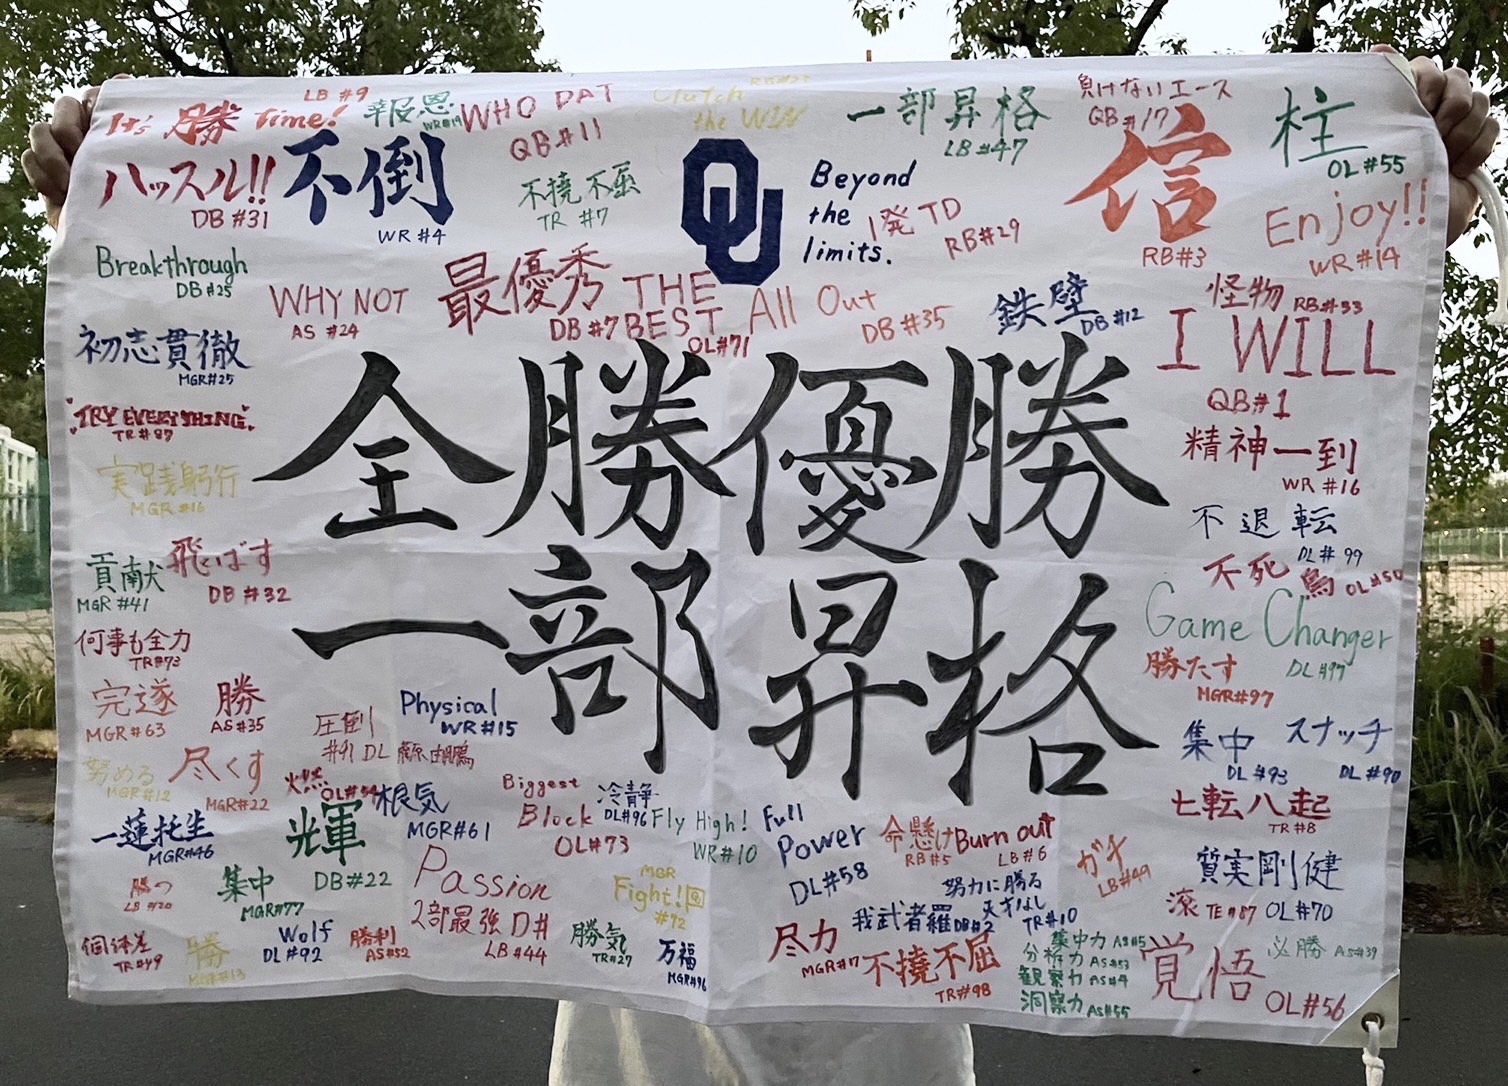 It's 勝 Time! LB #9
報恩 WR#19
WHO DAT QB #11
Clutch the WIN RB#23
一部昇格 LB #47
負けないエース QB #17
柱 OL #55
ハッスル!! DB #31
不倒 WR #4
不撓不屈 TR #7
OU
Beyond the limits.
1発TD RB#29
信 RB#3
Enjoy!! WR #14
Breakthrough DB #25
WHY NOT AS #24
最優秀 DB #7
THE BEST OL#71
All Out DB #35
鉄壁 DB #12
怪物 RB#33
I WILL QB #1
初志貫徹 MGR#25
TRY EVERYTHING TR#87
実践躬行 MGR #16
全勝優勝
一部昇格
精神一到 WR #16
不退転 DL# 99
不死鳥 OL#50
貢献 MGR #41
飛ばす DB #32
Game Changer DL #97
勝たす MGR#97
何事も全力 TR#73
完遂 MGR #63
勝 AS #35
圧倒 #91 DL
Physical WR #15
集中 DL #93
スナッチ DL #90
努める MGR#12
尽くす MGR#22
OL#54
根気 MGR #61
Biggest Block OL #73
冷静 DL#96
Fly High! WR #10
Full Power DL #58
命懸け RB #5
Burn out LB #6
ガチ LB#49
七転八起 TR #8
一蓮托生 MGR#46
光輝 DB #22
集中 MGR#77
Passion
2部最強D# LB #44
MGR Fight! #92
努力に勝る天才なし TR#10
質実剛健 OL #70
滾 TE #87
勝つ LB #20
個体差 TR#49
勝 MGR#13
Wolf DL #92
勝利 AS#52
勝気 TR#27
万福 MGR#96
尽力 MGR #17
我武者羅 DB#2
不撓不屈 TR#98
集中力 AS#5
分析力 AS#53
観察力 AS#4
洞察力 AS#55
覚悟 OL#56
必勝 AS#39